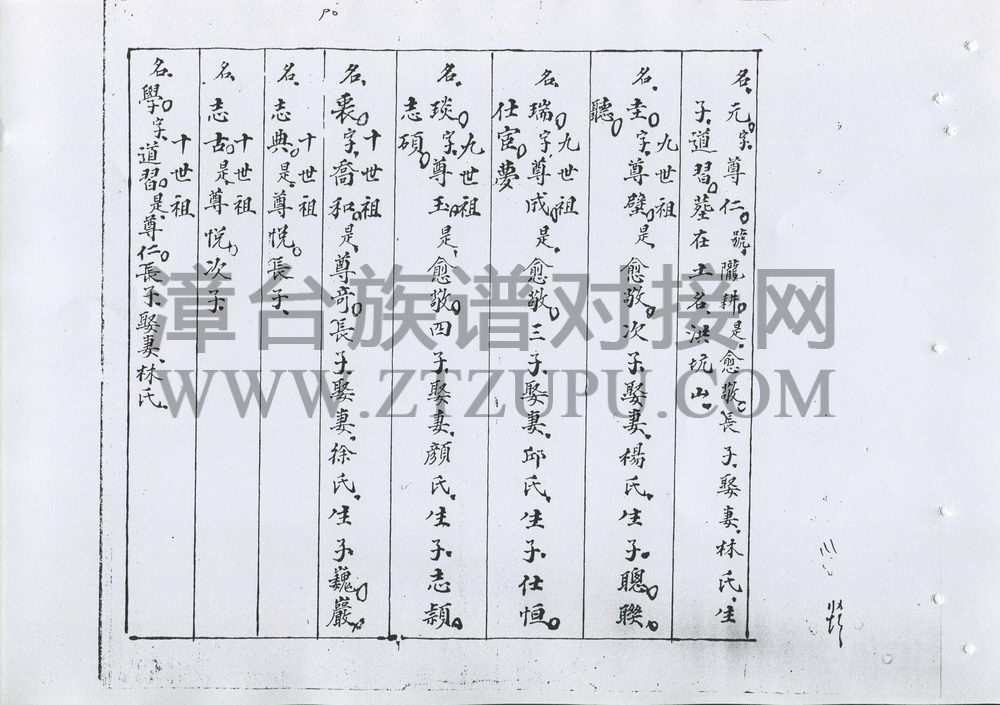 名元字尊仁號隴耕是愈敬長子娶妻林氏生
子道習墓在土名洪坑山
九世祖
名圭字尊璧是愈敬次子娶妻楊氏生子聰聯
聽
九世祖
名瑞字尊成是愈敬三子娶妻邱氏生子仕恒
仕宦夢
九世祖
名琰字尊玉是愈敬四子娶妻顏氏生子志穎
志碩
十世祖
名裘字喬和是尊奇長子娶妻徐氏生子巍巖
十世祖
名志典是尊悅長子
十世祖
名志古是尊悅次子
十世祖
名學字道習是尊仁長子娶妻林氏
漳台族谱对接网
WWW.ZTZUPU.COM